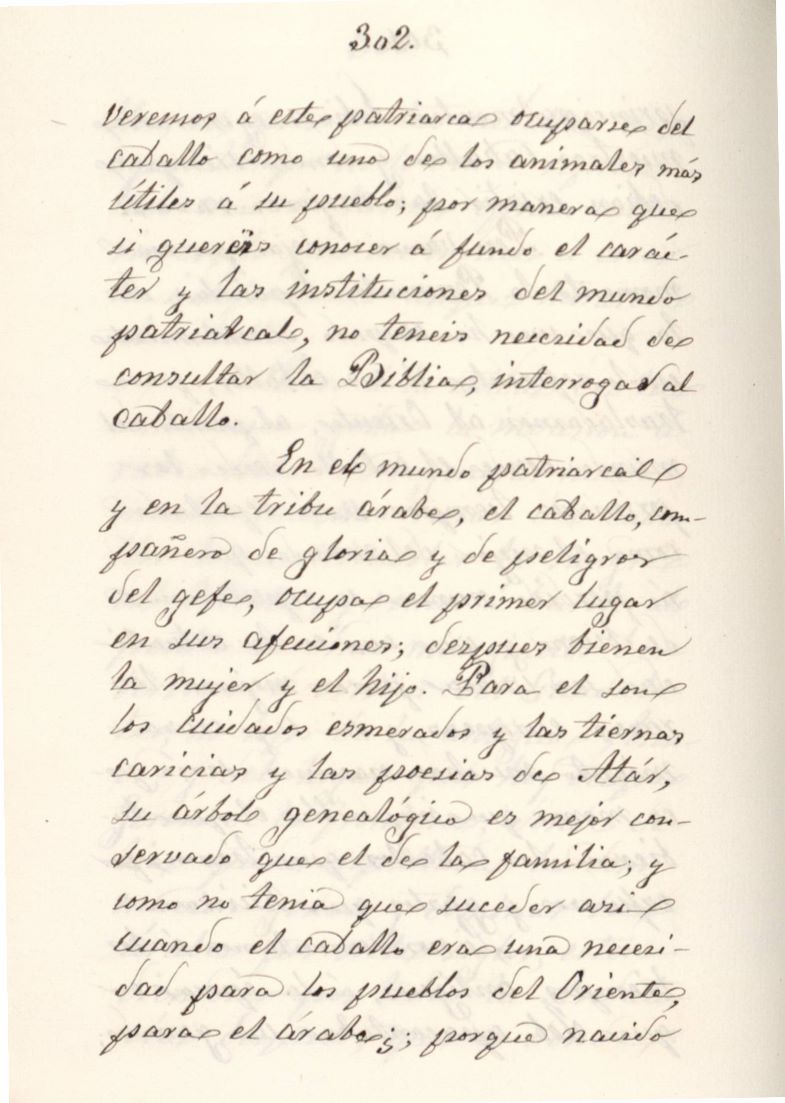 302.
veremos á este patriarca ocuparse del
caballo como uno de los animales más
útiles á su pueblo; por manera que
si quereïs conocer á fundo el carác-
ter y las instituciones del mundo
patriarcal, no teneis necesidad de
consultar la Biblia, interrogad al
caballo.
En el mundo patriarcal
y en la tribu árabe, el caballo, com-
pañero de gloria y de peligros
del gefe, ocupa el primer lugar
en sus afecciones; despues bienen
la mujer y el hijo. Para el son
los cuidados esmerados y las tiernas
caricias y las poesias de Atár,
su árbol genealógico es mejor con-
servado que el de la familia; y
como no tenia que suceder asi
cuando el caballo era una necesi-
dad para los pueblos del Oriente,
para el árabe¿; porque nacido